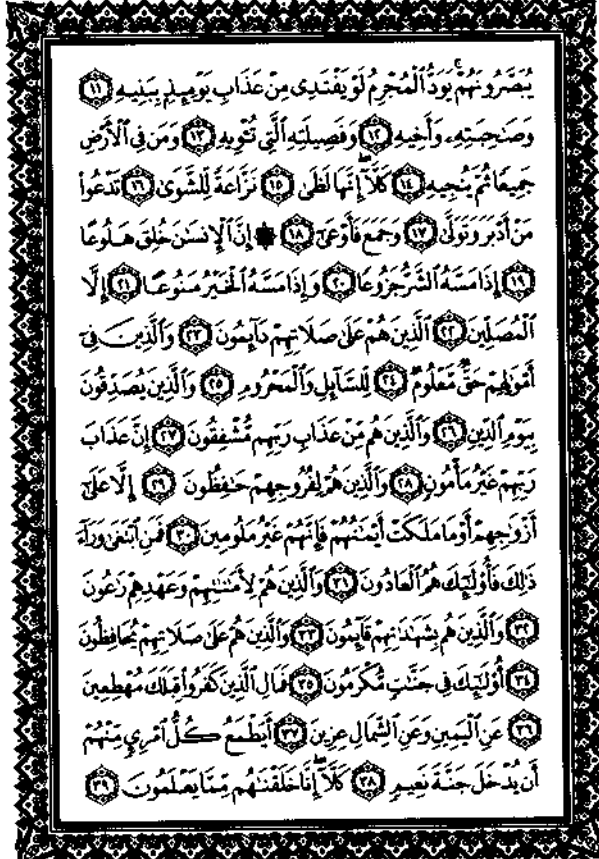 يُبَصَّرُونَهُمْ ۚ يَوَدُّ ٱلْمُجْرِمُ لَوْ يَفْتَدِى مِنْ عَذَابِ يَوْمِئِذٍۭ بِبَنِيهِ ١١
وَصَٰحِبَتِهِۦ وَأَخِيهِ ١٢ وَفَصِيلَتِهِ ٱلَّتِى تُـْٔوِيهِ ١٣ وَمَن فِى ٱلْأَرْضِ
جَمِيعًا ثُمَّ يُنجِيهِ ١٤ كَلَّآ ۖ إِنَّهَا لَظَىٰ ١٥ نَزَّاعَةً لِّلشَّوَىٰ ١٦ تَدْعُوا۟
مَنْ أَدْبَرَ وَتَوَلَّىٰ ١٧ وَجَمَعَ فَأَوْعَىٰٓ ١٨ ۞ إِنَّ ٱلْإِنسَٰنَ خُلِقَ هَلُوعًا
١٩ إِذَا مَسَّهُ ٱلشَّرُّ جَزُوعًا ٢٠ وَإِذَا مَسَّهُ ٱلْخَيْرُ مَنُوعًا ٢١ إِلَّا
ٱلْمُصَلِّينَ ٢٢ ٱلَّذِينَ هُمْ عَلَىٰ صَلَاتِهِمْ دَآئِمُونَ ٢٣ وَٱلَّذِينَ فِىٓ
أَمْوَٰلِهِمْ حَقٌّ مَّعْلُومٌ ٢٤ لِّلسَّآئِلِ وَٱلْمَحْرُومِ ٢٥ وَٱلَّذِينَ يُصَدِّقُونَ
بِيَوْمِ ٱلدِّينِ ٢٦ وَٱلَّذِينَ هُم مِّنْ عَذَابِ رَبِّهِم مُّشْفِقُونَ ٢٧ إِنَّ عَذَابَ
رَبِّهِمْ غَيْرُ مَأْمُونٍ ٢٨ وَٱلَّذِينَ هُمْ لِفُرُوجِهِمْ حَٰفِظُونَ ٢٩ إِلَّا عَلَىٰٓ
أَزْوَٰجِهِمْ أَوْ مَا مَلَكَتْ أَيْمَٰنُهُمْ فَإِنَّهُمْ غَيْرُ مَلُومِينَ ٣٠ فَمَنِ ٱبْتَغَىٰ وَرَآءَ
ذَٰلِكَ فَأُو۟لَٰٓئِكَ هُمُ ٱلْعَادُونَ ٣١ وَٱلَّذِينَ هُمْ لِأَمَٰنَٰتِهِمْ وَعَهْدِهِمْ رَٰعُونَ
٣٢ وَٱلَّذِينَ هُم بِشَهَٰدَٰتِهِمْ قَآئِمُونَ ٣٣ وَٱلَّذِينَ هُمْ عَلَىٰ صَلَاتِهِمْ يُحَافِظُونَ
٣٤ أُو۟لَٰٓئِكَ فِى جَنَّٰتٍ مُّكْرَمُونَ ٣٥ فَمَالِ ٱلَّذِينَ كَفَرُوا۟ قِبَلَكَ مُهْطِعِينَ
٣٦ عَنِ ٱلْيَمِينِ وَعَنِ ٱلشِّمَالِ عِزِينَ ٣٧ أَيَطْمَعُ كُلُّ ٱمْرِئٍ مِّنْهُمْ
أَن يُدْخَلَ جَنَّةَ نَعِيمٍ ٣٨ كَلَّآ ۖ إِنَّا خَلَقْنَٰهُم مِّمَّا يَعْلَمُونَ ٣٩